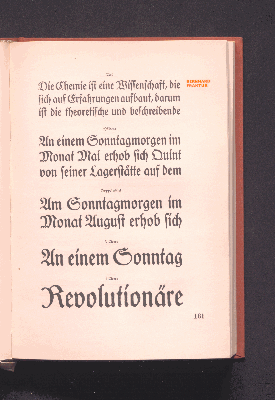 Die Chemie ist eine Wissenschaft, die
sich auf Erfahrungen aufbaut, darum
ist die theoretische und beschreibende
BERNHARD
FRAKTUR
An einem Sonntagmorgen im
Monat Mai erhob sich Quint
von seiner Lagerstätte auf dem
Am Sonntagmorgen im
Monat August erhob sich
An einem Sonntag
Revolutionäre
161